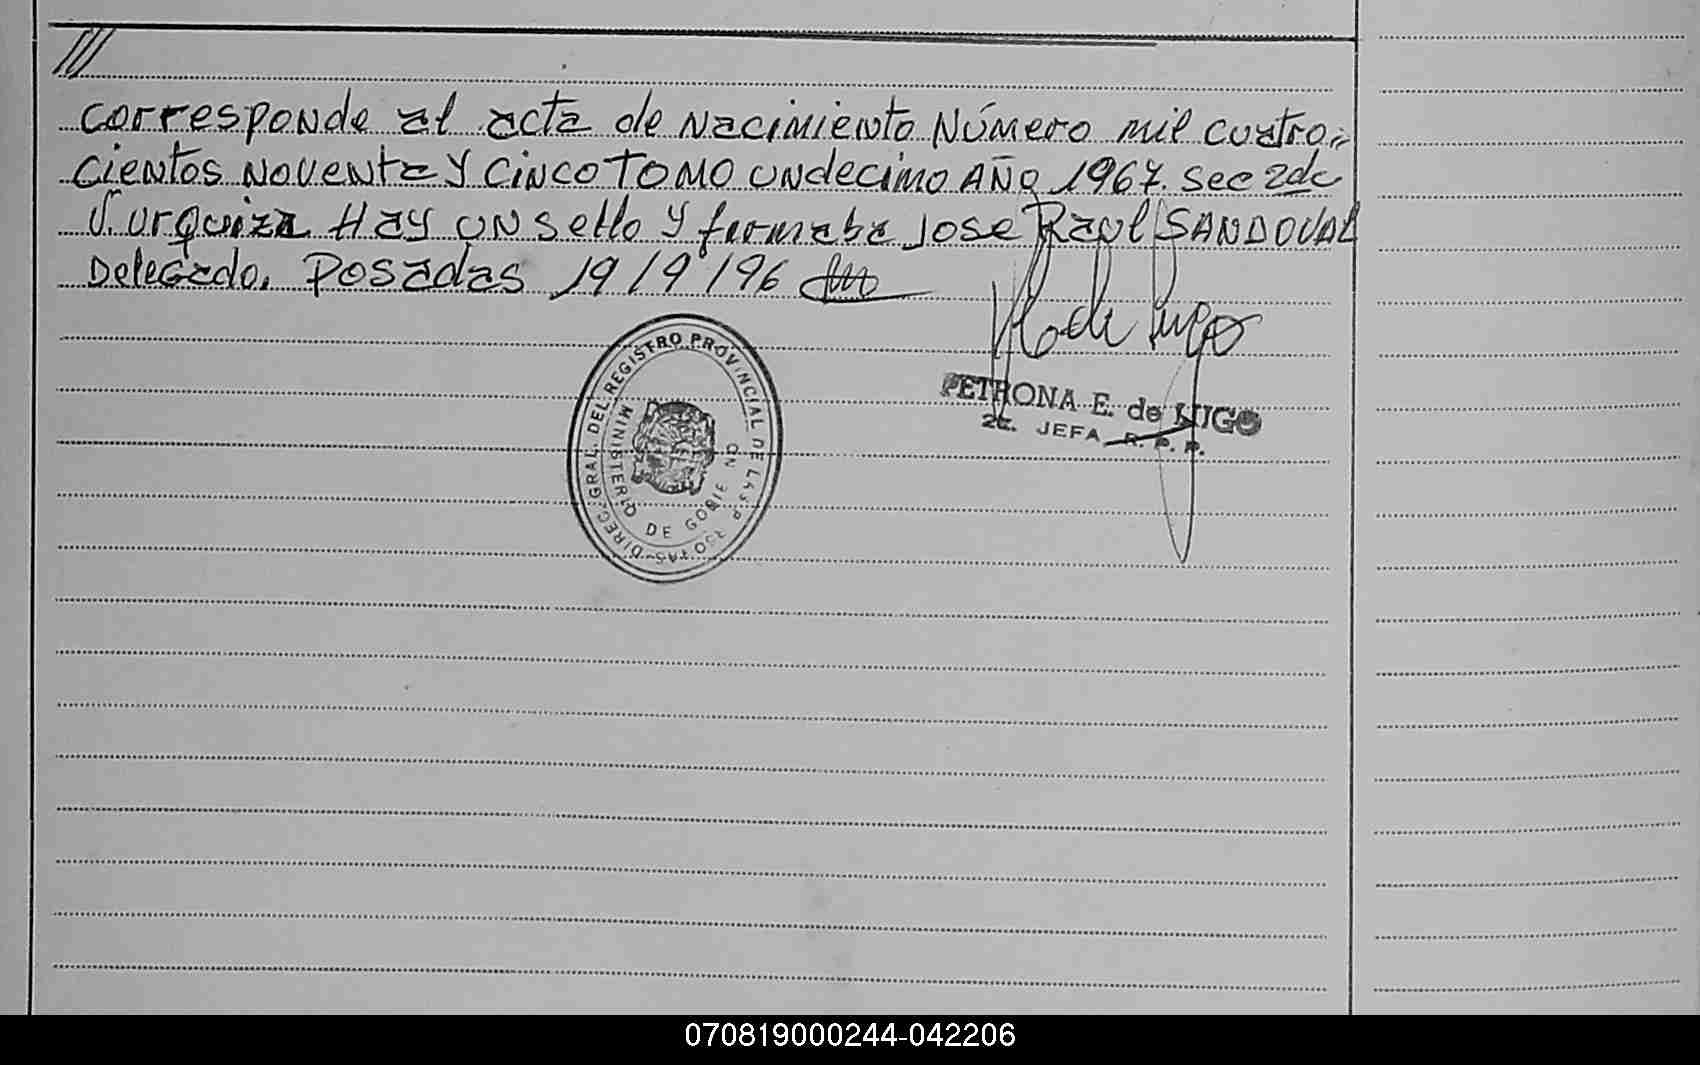 ///
corresponde al acta de Nacimiento Número mil cuatro=
cientos Noventa y cinco TOMO undecimo AÑO 1967. Sec 2da
V. urquiza Hay un sello y firmaba Jose Raul SANDOVAL
Delegado. Posadas 19/9/96
PETRONA E. de LUGO
2a. JEFA R. P. P.
DIREC. GRAL. DEL REGISTRO PROVINCIAL DE LAS PERSONAS
MINISTERIO DE GOBIERNO
070819000244-042206